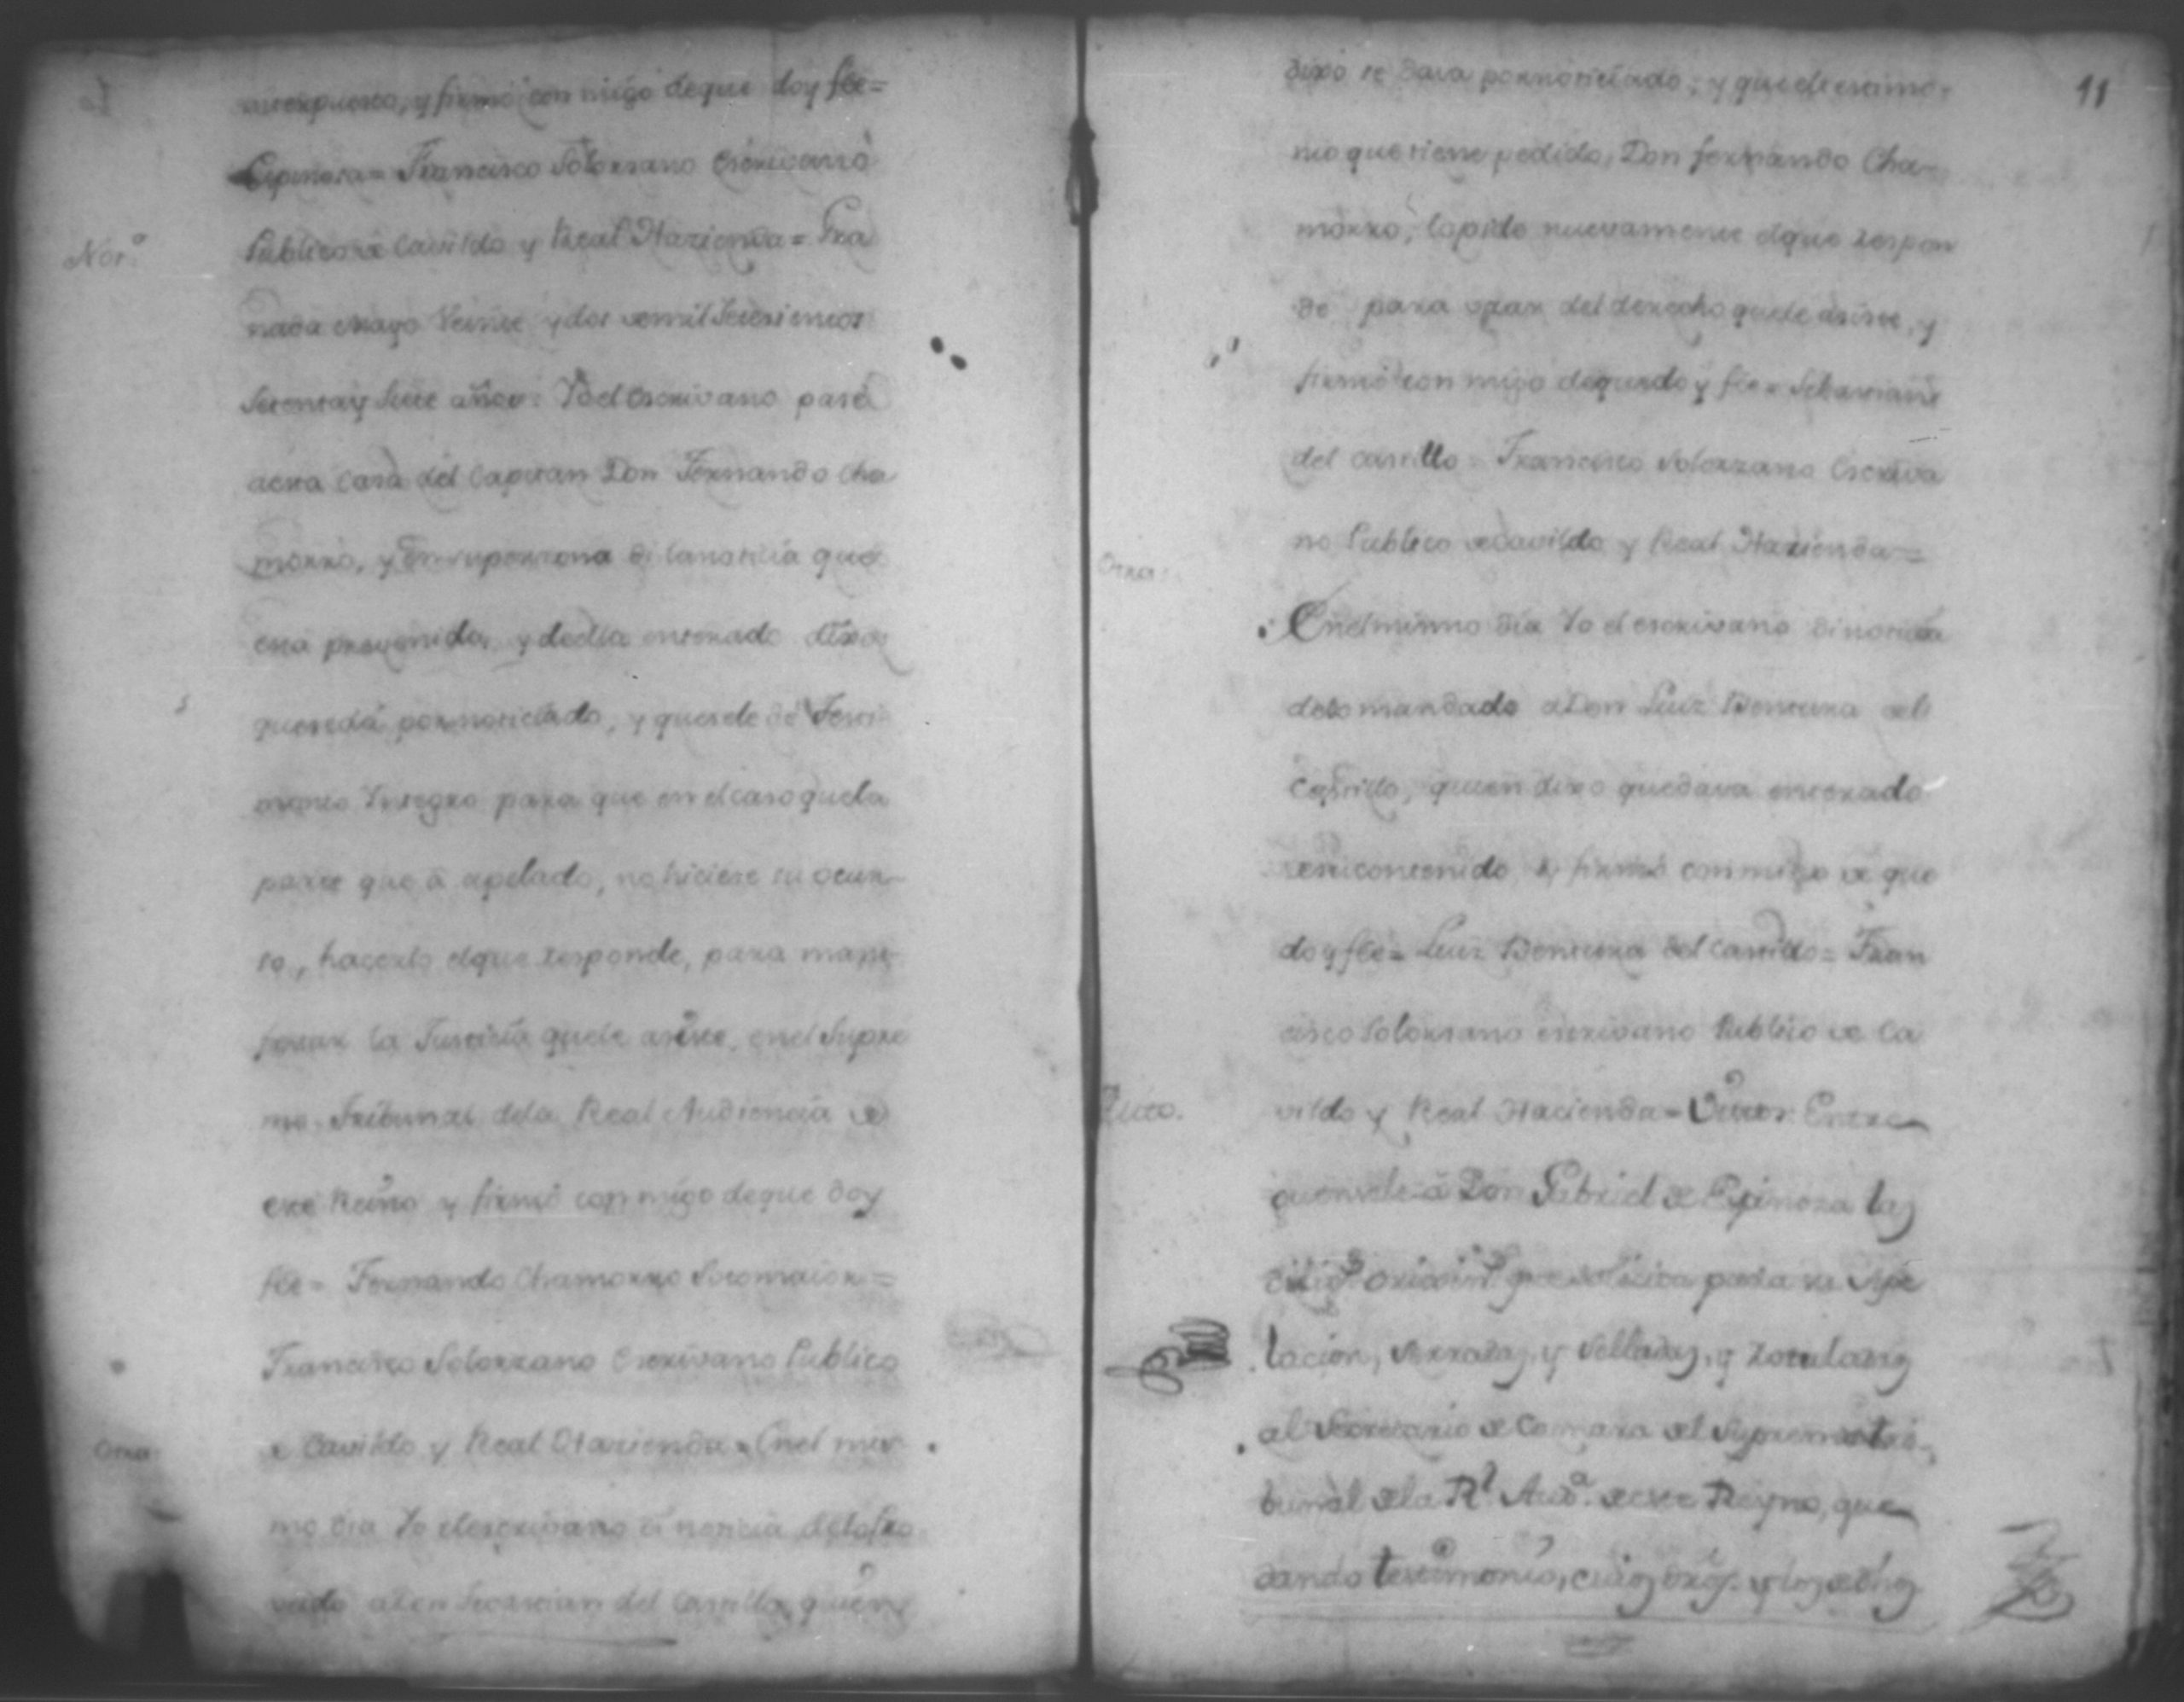 antexpuesto, y firmó con migo de que doy fee=
Espinosa= Francisco Solorzano Escrivano
Not.ª
Publico de Cavildo y Real Hazienda= Gra
nada Mayo Veinte y dos de mil Setesientos
Setenta y Siete años: Yo el Escrivano pasé
a esta Casa del Capitan Don Fernando Cha
morro, y en su persona di la noticia que
esta prevenida, y de ella enterado dixo
que se dá por noticiado, y que se le dé Testi
monio Integro para que en el caso que la
parte que á apelado, no hiciere su ocur-
so, hacerlo el que responde, para mani-
festar la Justicia que le asiste, en el Supre
mo Tribunal de la Real Audiencia de
este Reino y firmó con migo de que doy
fee= Fernando Chamorro Sotomaior=
Francisco Solorzano Escrivano Publico
Otra
de Cavildo y Real Hazienda= En el mis
mo dia Yo el escrivano di noticia de lo Pro
veido a Don Sevastian del Castillo, quien
11
dixo se dava por noticiado; y que el testimo-
nio que tiene pedido, Don fernando Cha-
morro, lo pide nuevamente el que respon
de para usar del derecho que le asiste, y
firmó con migo de que doy fee= Sebastian
del castillo= Francisco Solorzano Escriva
no Publico de Cavildo y Real Hazienda=
Otra
En el mismo dia Yo el escrivano di noticia
de lo mandado a Don Luiz Bentura del
Castillo, quien dixo quedava enterado
de su contenido y firmó con migo de que
doy fee= Luiz Bentura del Castillo= Fran
cisco Solorzano escrivano Publico de Ca
Auto.
vildo y Real Hacienda= Autos: Entre
guensele á Don Gabriel de Espinosa las
dilig.s origin.s que solicita para su Ape
lacion, serradas, y selladas, y rotuladas
al Secretario de Camara del Supremo tri-
bunal de la R.l Aud.a de este Reyno, que
dando testimonio,